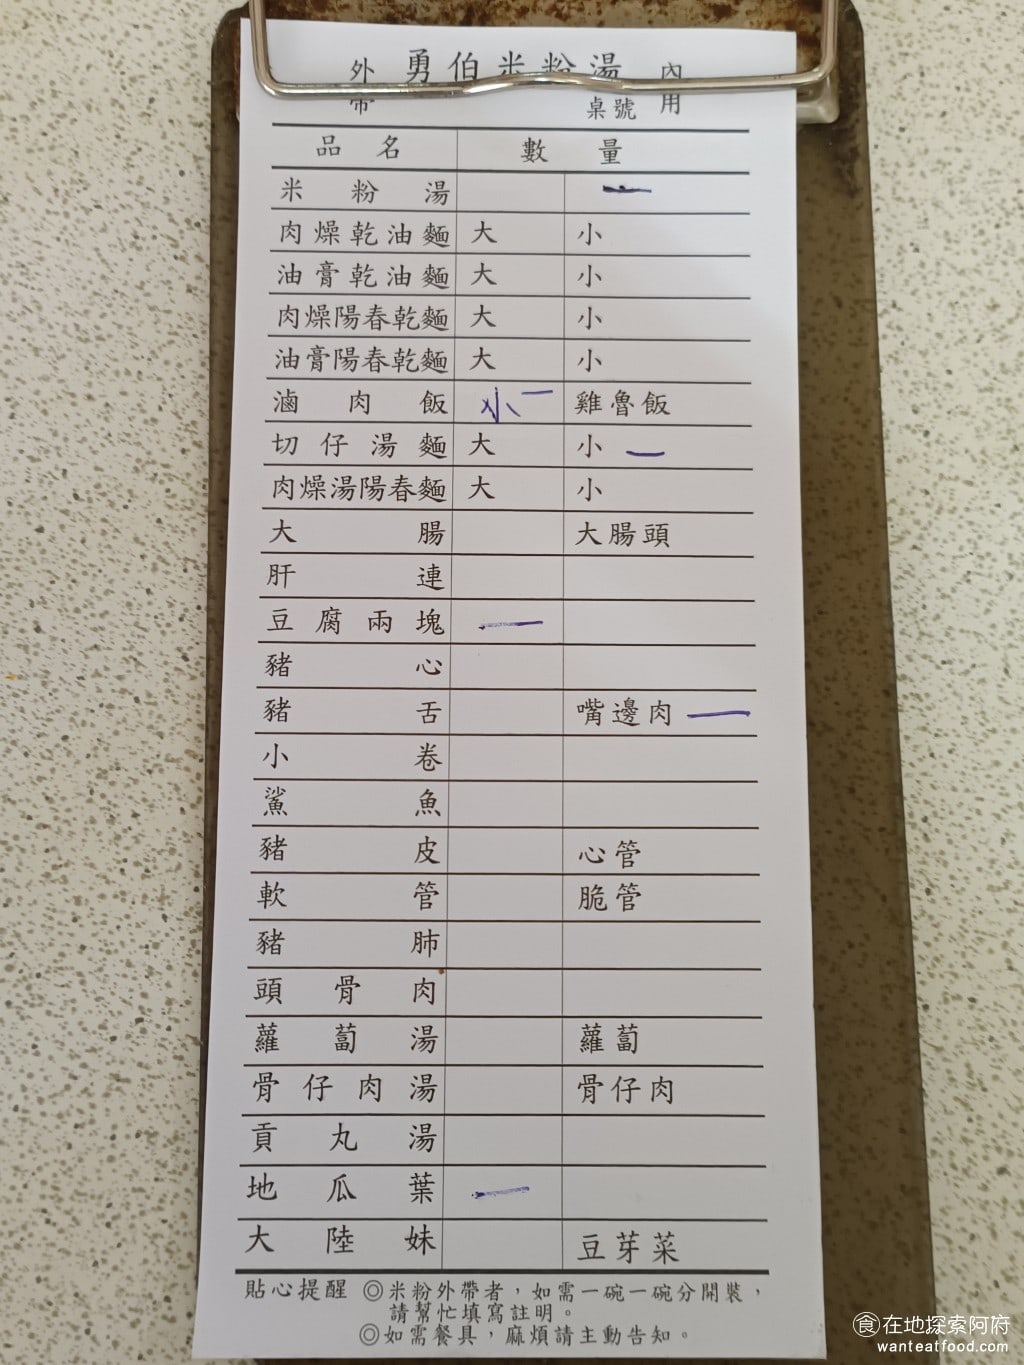 外帶 勇伯米粉湯 內用
桌號
品名 數量
米粉湯 一
肉燥乾油麵 大 小
油膏乾油麵 大 小
肉燥陽春乾麵 大 小
油膏陽春乾麵 大 小
滷肉飯 小一 雞魯飯
切仔湯麵 大 小 一
肉燥湯陽春麵 大 小
大腸 大腸頭
肝連
豆腐兩塊 一
豬心
豬舌 嘴邊肉 一
小卷
鯊魚
豬皮 心管
軟管 脆管
豬肺
頭骨肉
蘿蔔湯 蘿蔔
骨仔肉湯 骨仔肉
貢丸湯
地瓜葉 一
大陸妹 豆芽菜
貼心提醒 ◎米粉外帶者，如需一碗一碗分開裝，
請幫忙填寫註明。
◎如需餐具，麻煩請主動告知。
食在地探索阿府
wanteatfood.com